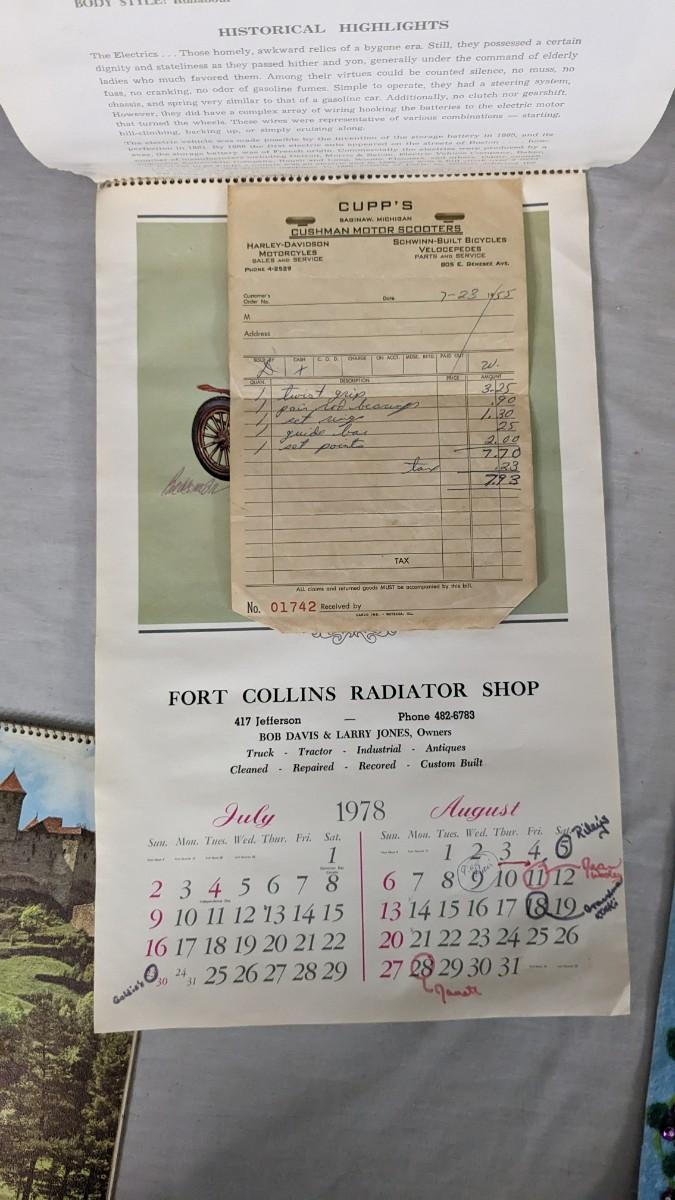 BODY STYLE: Runabout
HISTORICAL HIGHLIGHTS
The Electrics . . . Those homely, awkward relics of a bygone era. Still, they possessed a certain
dignity and stateliness as they passed hither and yon, generally under the command of elderly
ladies who much favored them. Among their virtues could be counted silence, no muss, no
fuss, no cranking, no odor of gasoline fumes. Simple to operate, they had a steering system,
chassis, and spring very similar to that of a gasoline car. Additionally, no clutch nor gearshift.
However, they did have a complex array of wiring hooking the batteries to the electric motor
that turned the wheels. These wires were representative of various combinations — starting,
hill-climbing, backing up, or simply cruising along.
The electric vehicle was made possible by the invention of the storage battery in 1860, and its
CUPP'S
SAGINAW, MICHIGAN
CUSHMAN MOTOR SCOOTERS
HARLEY-DAVIDSON
MOTORCYLES
SALES AND SERVICE
PHONE 4-2529
SCHWINN-BUILT BICYCLES
VELOCEPEDES
PARTS AND SERVICE
805 E. GENESEE AVE.
Customer's
Order No.
Date 7-23 1955
M
Address
SOLD BY CASH C. O. D. CHARGE ON ACCT. MDSE. RETD. PAID OUT
X W.
QUAN. DESCRIPTION PRICE AMOUNT
1 twist grip 3.25
1 pair rod bearings .90
1 set rings 1.30
1 guide bar 25
1 set points 2.00
7.70
tax .23
7.93
TAX
ALL claims and returned goods MUST be accompanied by this bill.
No. 01742 Received by
FORT COLLINS RADIATOR SHOP
417 Jefferson — Phone 482-6783
BOB DAVIS & LARRY JONES, Owners
Truck - Tractor - Industrial - Antiques
Cleaned - Repaired - Recored - Custom Built
July 1978 August
Sun. Mon. Tues. Wed. Thur. Fri. Sat.
1
2 3 4 5 6 7 8
Independence Day
9 10 11 12 13 14 15
16 17 18 19 20 21 22
Goldie's 30 24 31 25 26 27 28 29
Sun. Mon. Tues. Wed. Thur. Fri. Sat.
1 2 3 4 5
6 7 8 9 10 11 12
13 14 15 16 17 18 19
20 21 22 23 24 25 26
27 28 29 30 31